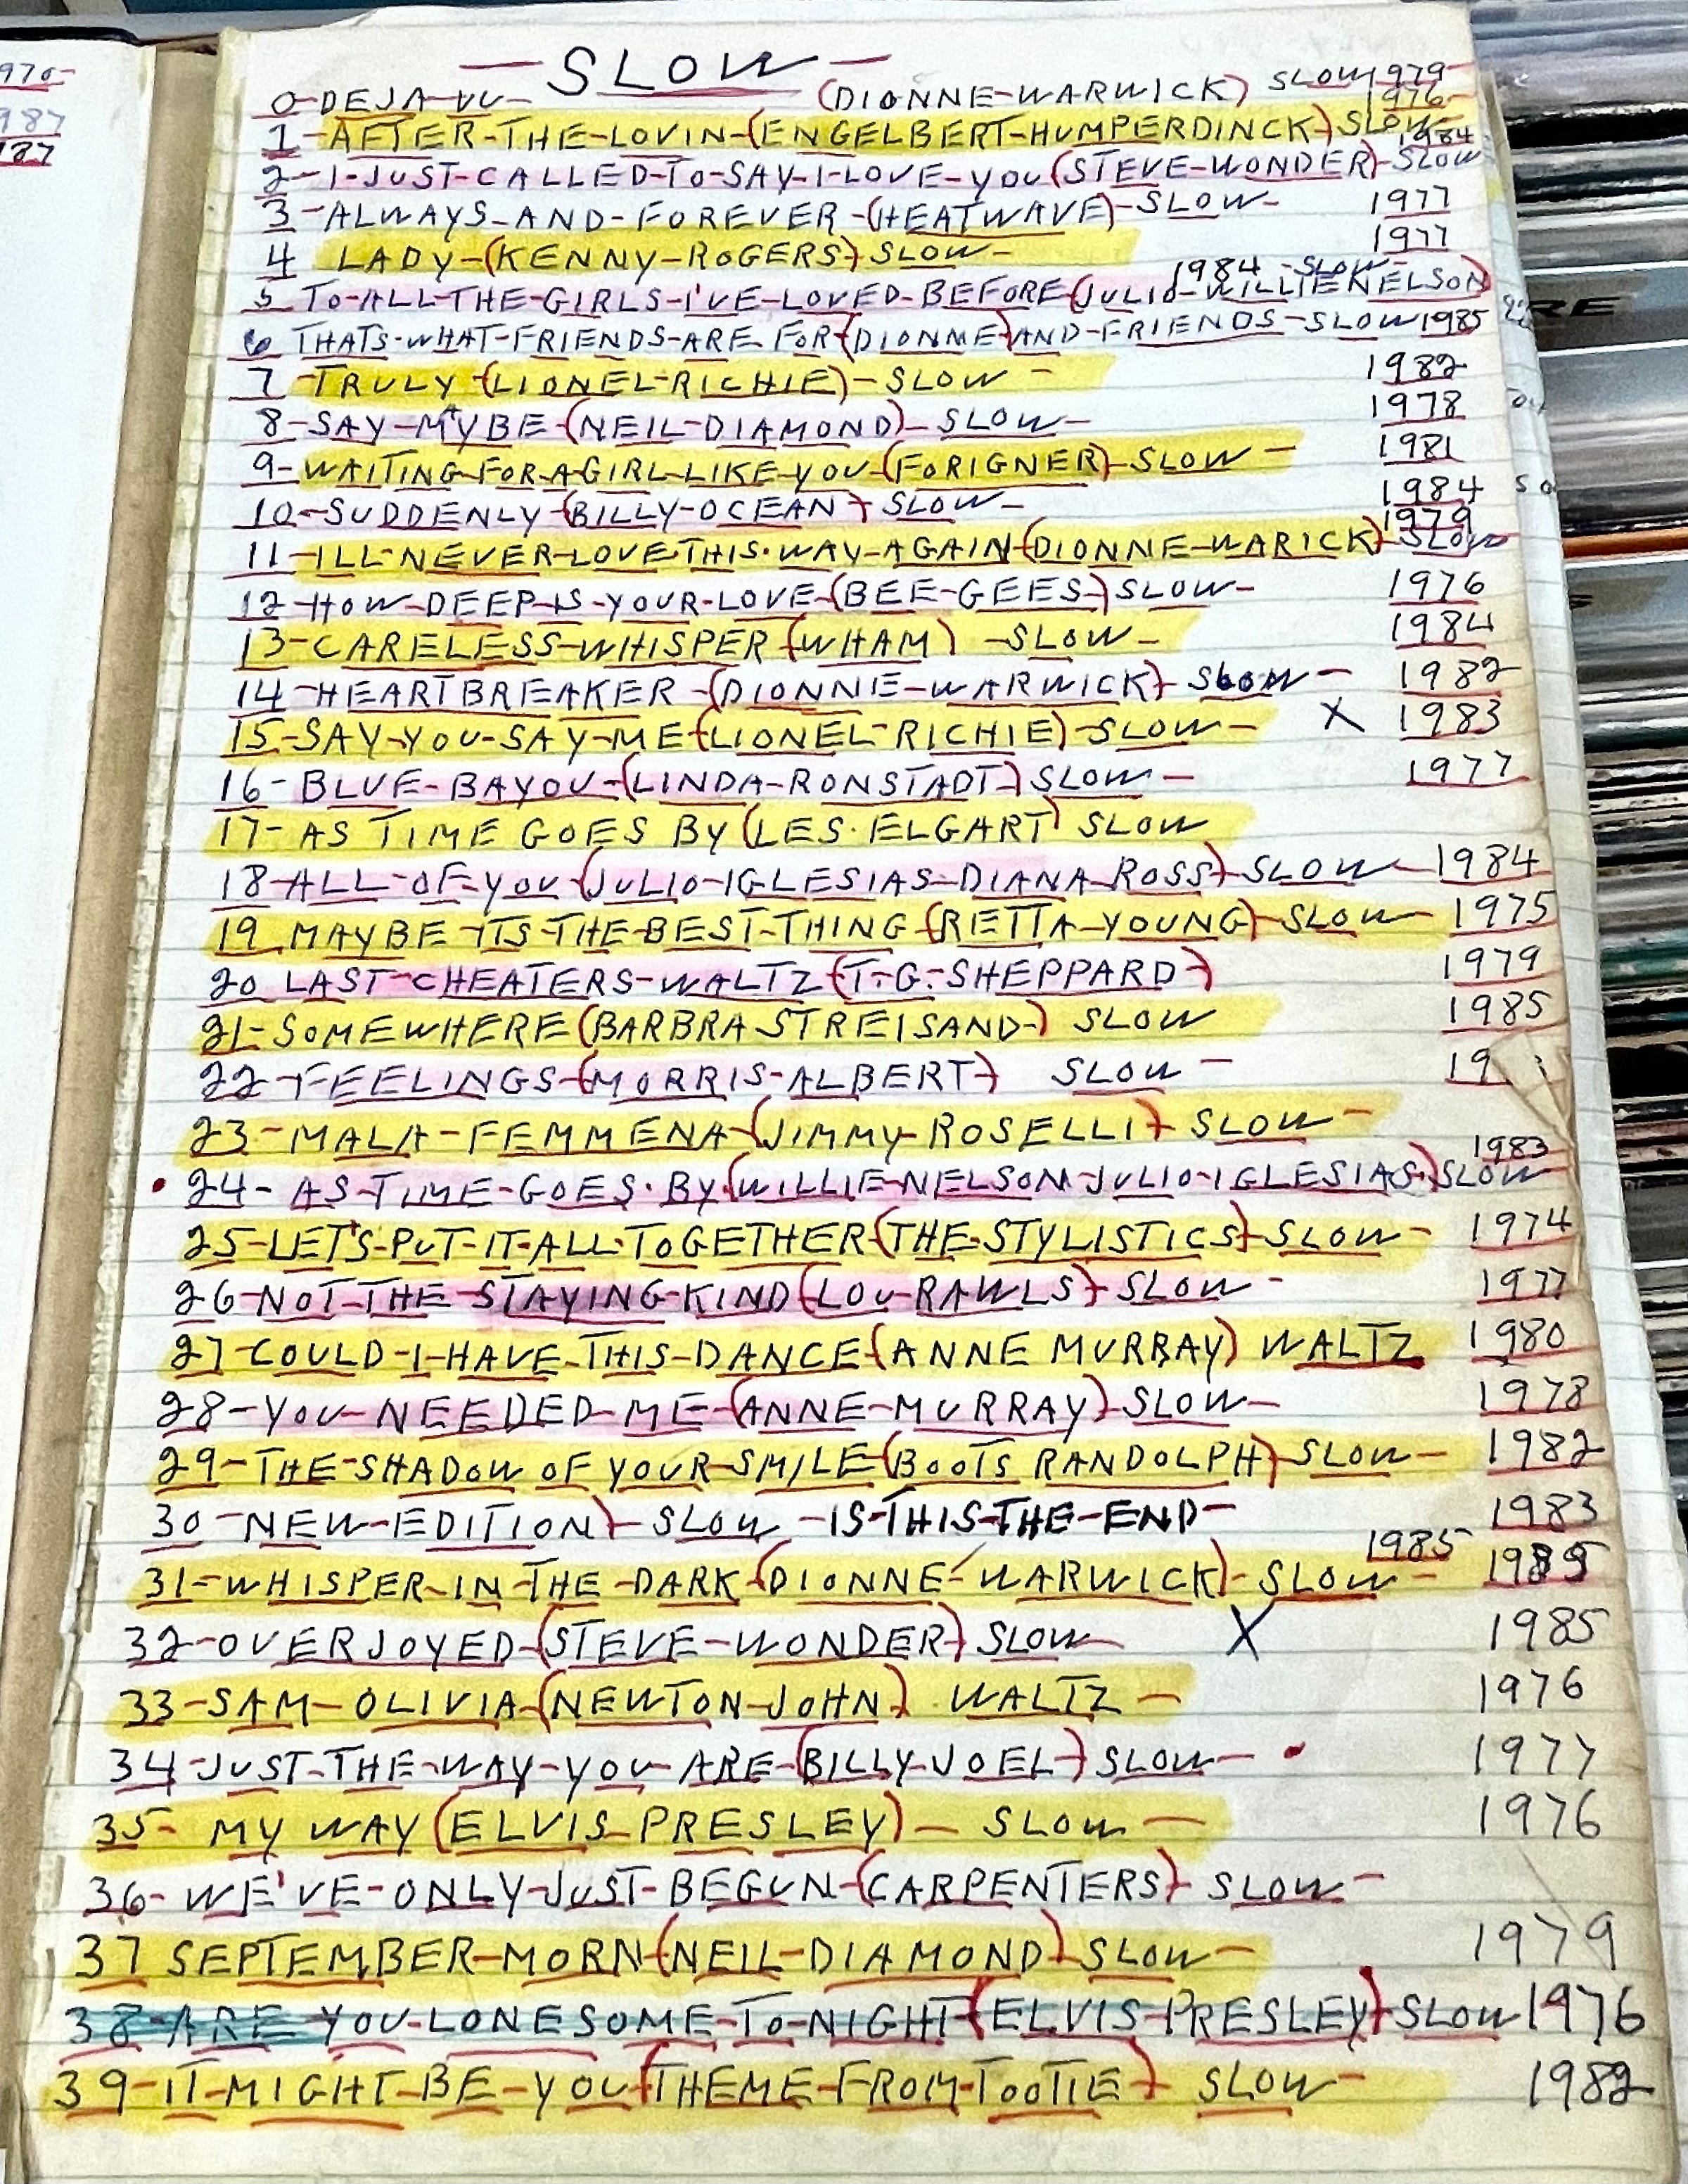 970
987
187
— SLOW —
0-DEJA-VU- (DIONNE-WARWICK) SLOW 1979
1-AFTER-THE-LOVIN-(ENGELBERT-HUMPERDINCK)-SLOW- 1976
2-I-JUST-CALLED-TO-SAY-I-LOVE-YOU(STEVE-WONDER)-SLOW 1984
3-ALWAYS-AND-FOREVER-(HEATWAVE)-SLOW- 1977
4 LADY-(KENNY-ROGERS)SLOW- 1977
5 TO-ALL-THE-GIRLS-I'VE-LOVED-BEFORE(JULIO-WILLIE NELSON) 1984-SLOW-
6 THATS-WHAT-FRIENDS-ARE-FOR(DIONNE)AND-FRIENDS-SLOW 1985
7-TRULY-(LIONEL-RICHIE)-SLOW - 1982
8-SAY-MAYBE-(NEIL-DIAMOND)-SLOW- 1978
9-WAITING-FOR-A-GIRL-LIKE-YOU-(FORIGNER)-SLOW - 1981
10-SUDDENLY-(BILLY-OCEAN)-SLOW- 1984
11-ILL-NEVER-LOVE-THIS-WAY-AGAIN-(DIONNE-WARICK)-SLOW 1979
12-HOW-DEEP-IS-YOUR-LOVE-(BEE-GEES)SLOW- 1976
13-CARELESS-WHISPER-(WHAM) -SLOW- 1984
14-HEARTBREAKER-(DIONNE-WARWICK)-SLOW- 1982
15-SAY-YOU-SAY-ME-(LIONEL-RICHIE)-SLOW- X 1983
16-BLUE-BAYOU-(LINDA-RONSTADT-)SLOW- 1977
17-AS TIME GOES BY(LES.ELGART) SLOW
18-ALL-OF-YOU-(JULIO-IGLESIAS-DIANA-ROSS)-SLOW-1984
19 MAYBE-ITS-THE-BEST-THING-(RETTA-YOUNG)-SLOW-1975
20 LAST-CHEATERS-WALTZ(T.G.SHEPPARD) 1979
21-SOMEWHERE(BARBRA STREISAND-) SLOW 1985
22-FEELINGS-(MORRIS-ALBERT) SLOW- 19
23-MALA-FEMMENA-(JIMMY-ROSELLI)-SLOW-
24-AS-TIME-GOES.BY.(WILLIE-NELSON-JULIO-IGLESIAS.)SLOW 1983
25-LET'S-PUT-IT-ALL-TOGETHER-(THE-STYLISTICS)-SLOW- 1974
26-NOT-THE STAYING-KIND(LOU-RAWLS)-SLOW- 1977
27-COULD-I-HAVE-THIS-DANCE-(ANNE MURRAY) WALTZ 1980
28-YOU-NEEDED-ME-(ANNE-MURRAY)-SLOW- 1978
29-THE-SHADOW OF YOUR-SMILE-(BOOTS RANDOLPH)-SLOW- 1982
30-NEW-EDITION)-SLOW -IS-THIS-THE-END- 1983
31-WHISPER-IN-THE-DARK-(DIONNE-WARWICK)-SLOW- 1985 1985
32-OVERJOYED-(STEVE-WONDER) SLOW- X 1985
33-SAM-OLIVIA-(NEWTON-JOHN) WALTZ- 1976
34-JUST-THE-WAY-YOU-ARE-(BILLY-JOEL)SLOW- 1977
35- MY WAY(ELVIS PRESLEY)- SLOW- 1976
36-WE'VE-ONLY-JUST-BEGUN-(CARPENTERS)-SLOW-
37 SEPTEMBER-MORN-(NEIL-DIAMOND)-SLOW- 1979
38-ARE YOU-LONESOME-TO-NIGHT-(ELVIS-PRESLEY)-SLOW 1976
39-IT-MIGHT-BE-YOU(THEME-FROM-TOOTIE)- SLOW- 1982